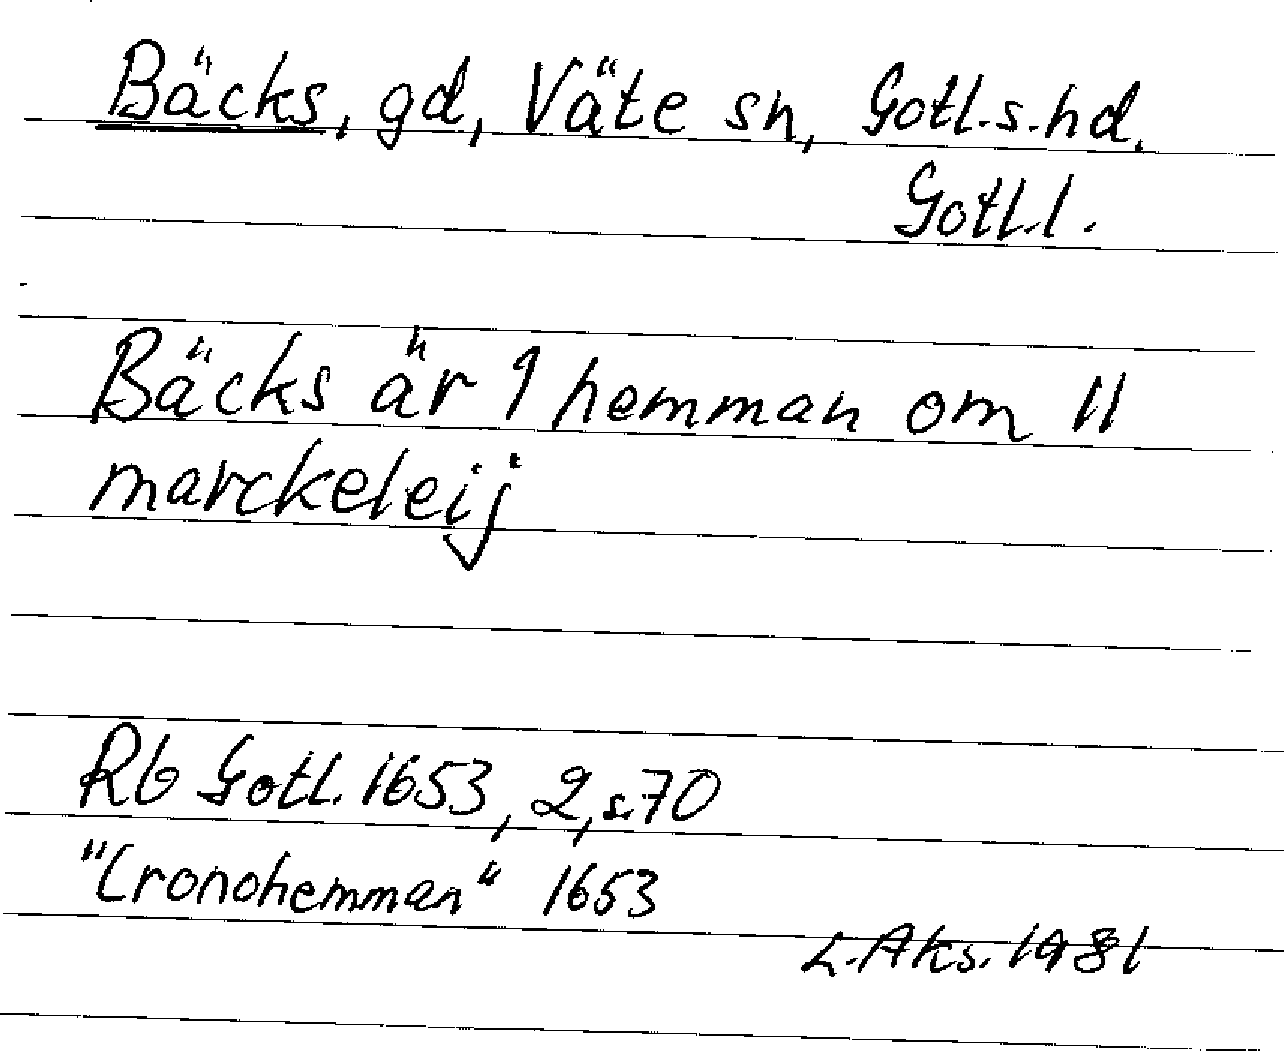 Bäcks, gd, Väte sn, Gotl.s.hd.
Gotl.l.
Bäcks är 1 hemman om 11
marckeleij
Rb Gotl. 1653, 2, s.70
"Cronohemman" 1653
L.Aks. 1981